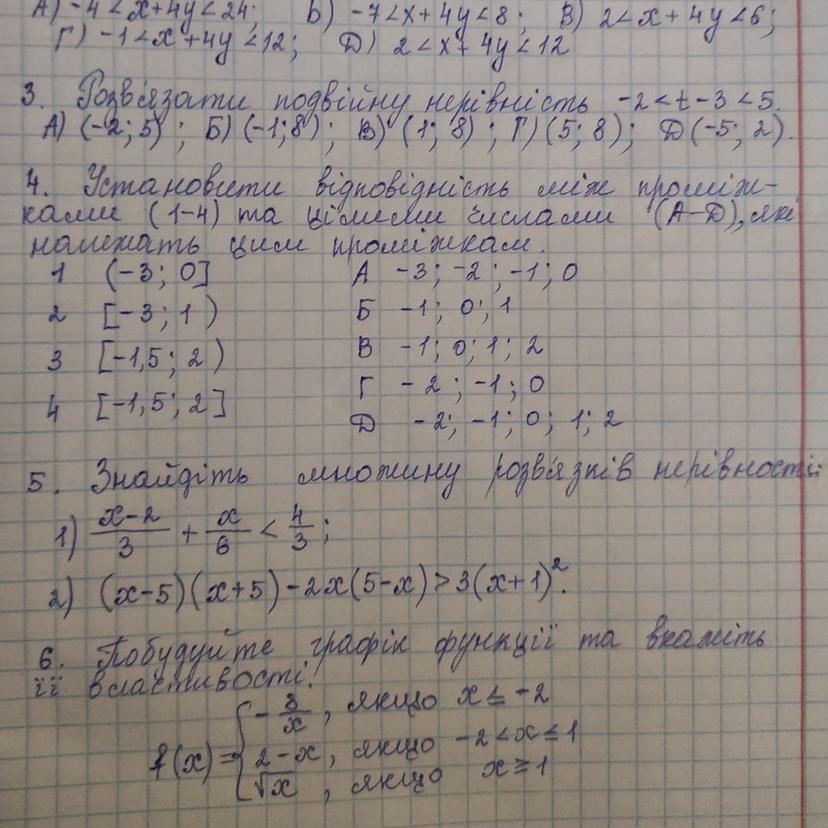 А) -4 < x + 4y < 24; Б) -7 < x + 4y < 8; В) 2 < x + 4y < 6;
Г) -1 < x + 4y < 12; Д) 2 < x + 4y < 12
3. Розв'язати подвійну нерівність -2 < t - 3 < 5.
А) (-2; 5); Б) (-1; 8); В) (1; 8); Г) (5; 8); Д (-5; 2).
4. Установити відповідність між проміж-
ками (1-4) та цілими числами (А-Д), які
належать цим проміжкам.
1 (-3; 0] А -3; -2; -1; 0
2 [-3; 1) Б -1; 0; 1
3 [-1,5; 2) В -1; 0; 1; 2
4 [-1,5; 2] Г -2; -1; 0
Д -2; -1; 0; 1; 2
5. Знайдіть множину розв'язків нерівності:
1) (x-2)/3 + x/6 < 4/3;
2) (x-5)(x+5) - 2x(5-x) > 3(x+1)².
6. Побудуйте графік функції та вкажіть
її властивості:
f(x) = { -8/x, якщо x ≤ -2
2-x, якщо -2 < x ≤ 1
√x, якщо x ≥ 1